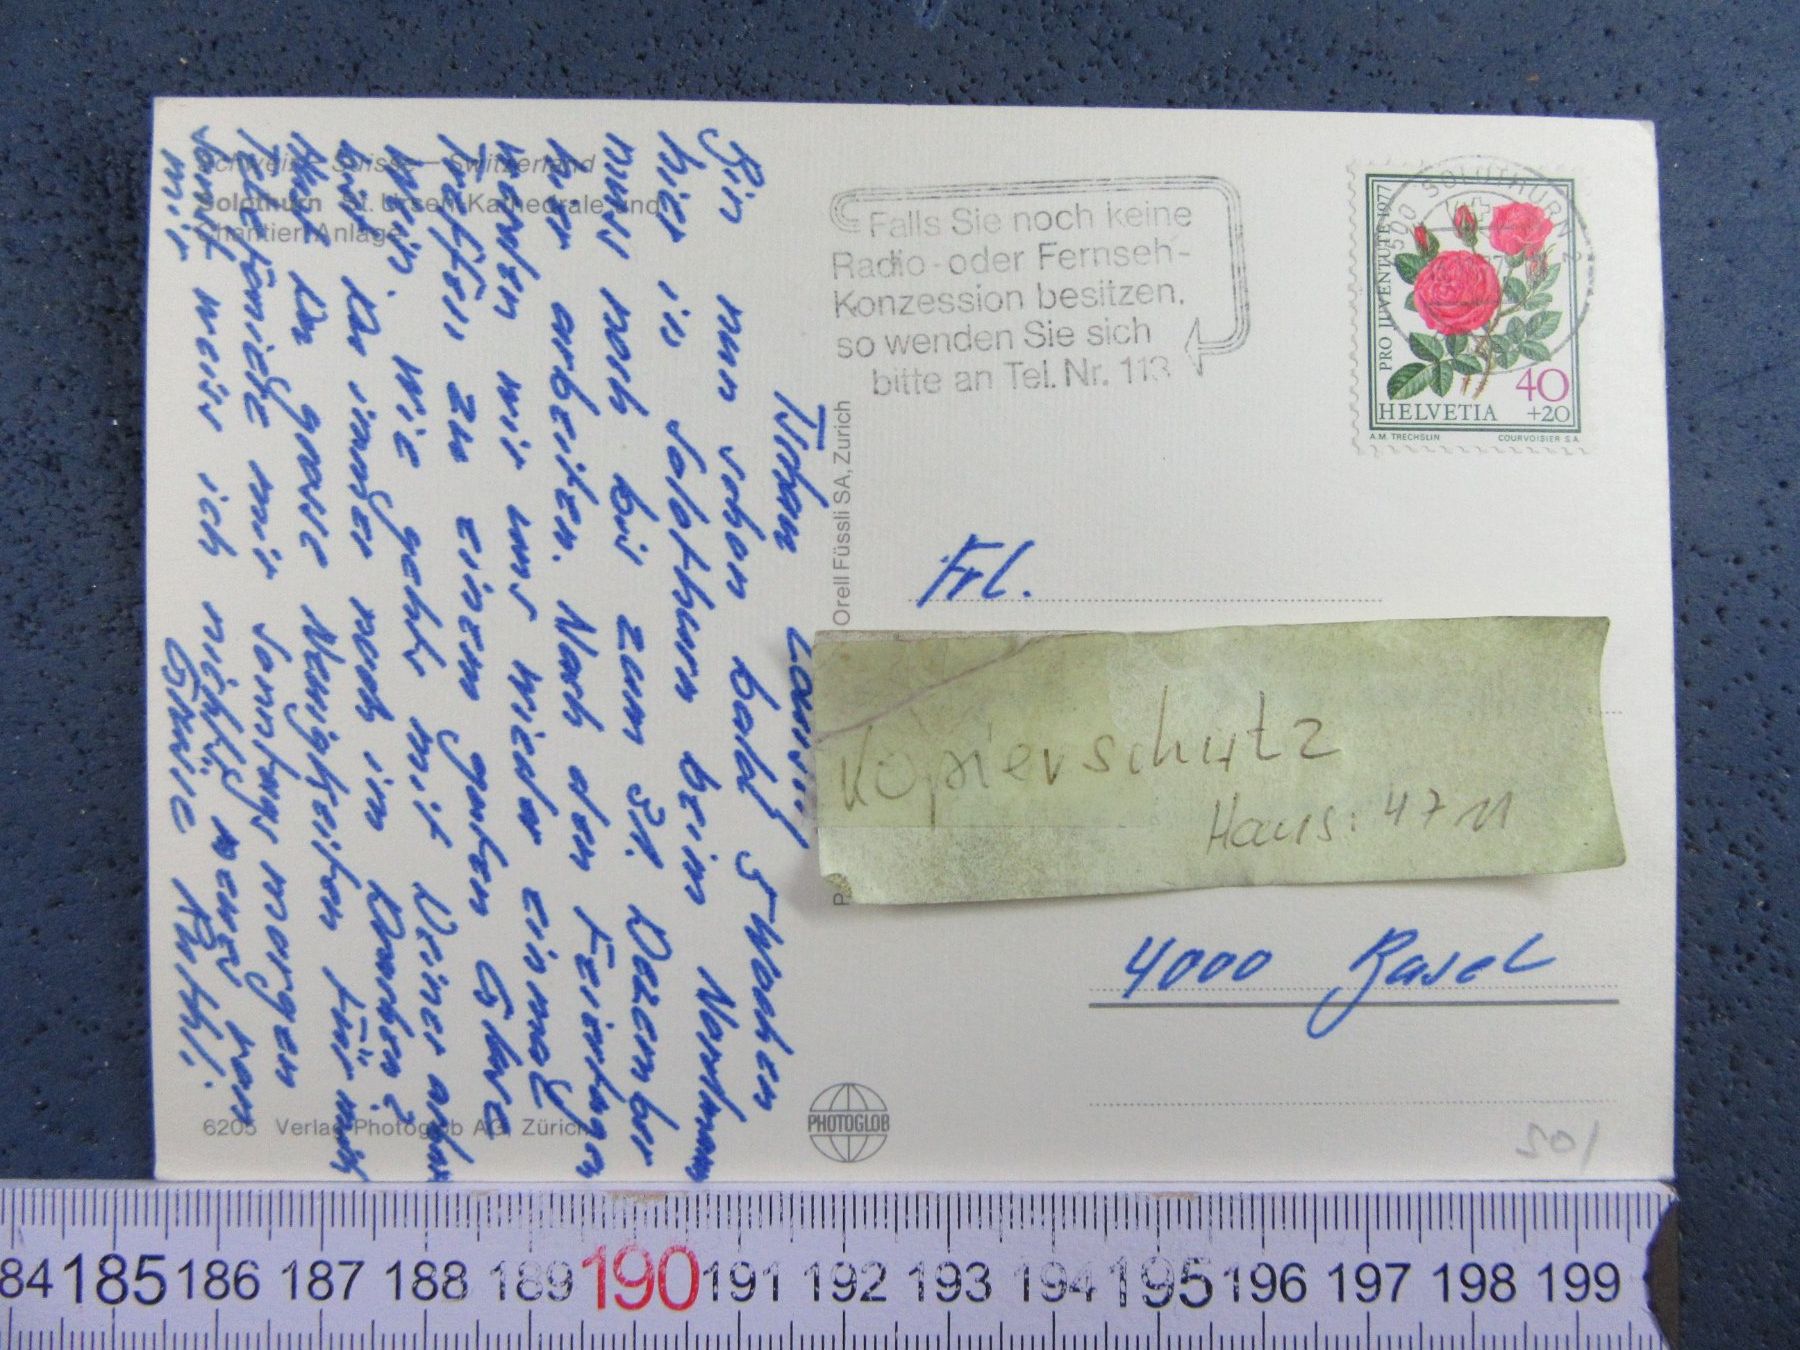 Schweiz – Suisse – Switzerland
Solothurn St. Ursen-Kathedrale und
Chantier-Anlage
Tschau
Bin nun schon bald 5 Wochen
hier in Solothurn beim
muss noch bis zum 31. Dezember
hier arbeiten. Nach den Feiertagen
werden wir uns wieder einmal
treffen zu einem guten Glas
Wein. Wie geht mit Deiner
bist du immer noch im
Hast du grosse Neuigkeiten für mich
Telefoniere mir Sonntags morgen
sonst weiss ich nichts neues von
mir Grüsse
6205 Verlag Photoglob AG, Zürich
Orell Füssli SA, Zürich
PHOTOGLOB
Falls Sie noch keine
Radio- oder Fernseh-
Konzession besitzen,
so wenden Sie sich
bitte an Tel. Nr. 113
4500 SOLOTHURN 2
PRO JUVENTUTE 1977
40
+20
HELVETIA
A.M. TRECHSLIN COURVOISIER S.A.
Frl.
Kopierschutz
Haus: 4711
4000 Basel
501
84 185 186 187 188 189 190 191 192 193 194 195 196 197 198 199